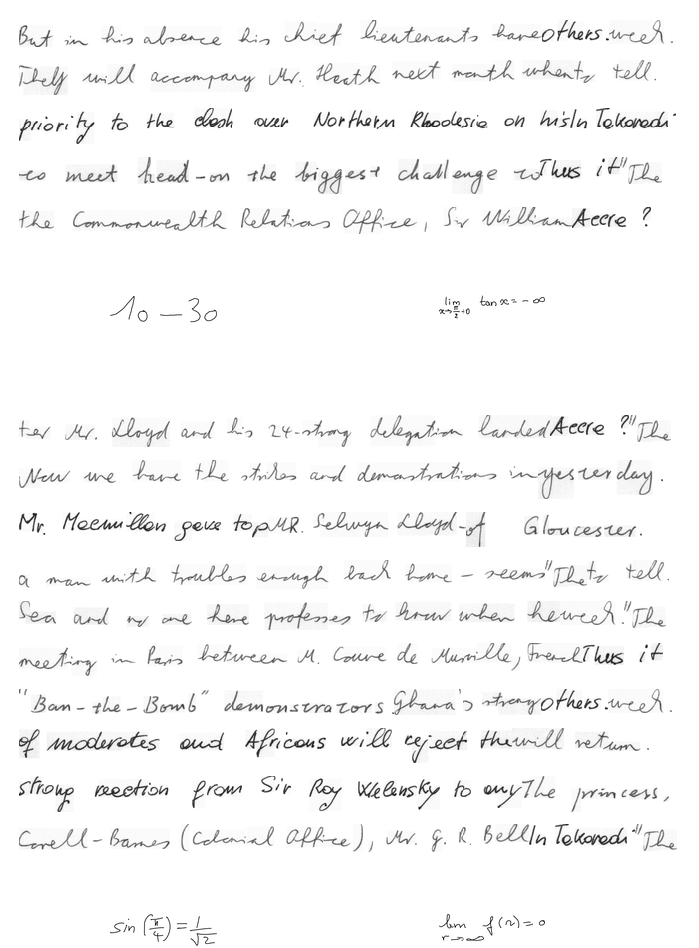 But in his absence his chief lieutenants have others. week.
They will accompany Mr. Heath next month when to tell.
priority to the clash over Northern Rhodesia on his In Takoradi
to meet head-on the biggest challenge to Thus it "The
the Commonwealth Relations Office, Sir William Accra ?
10 - 30
lim x→π/2+0 tan x = -∞
ter Mr. Lloyd and his 24-strong delegation landed Accra ?" The
Now we have the strikes and demonstrations in yesterday.
Mr. Macmillan gave top MR. Selwyn Lloyd - of Gloucester.
a man with troubles enough back home - seems "The to tell.
Sea and no one here professes to know when he week." The
meeting in Paris between M. Couve de Murville, French Thus it
"Ban-the-Bomb" demonstrators Ghana's strong others. week.
of moderates and Africans will reject the will return.
strong reaction from Sir Roy Welensky to any The princess,
Carell-Barnes (Colonial Office), Mr. G. R. Bell In Takoradi "The
sin(π/4) = 1/√2
lim r→∞ f(r) = 0